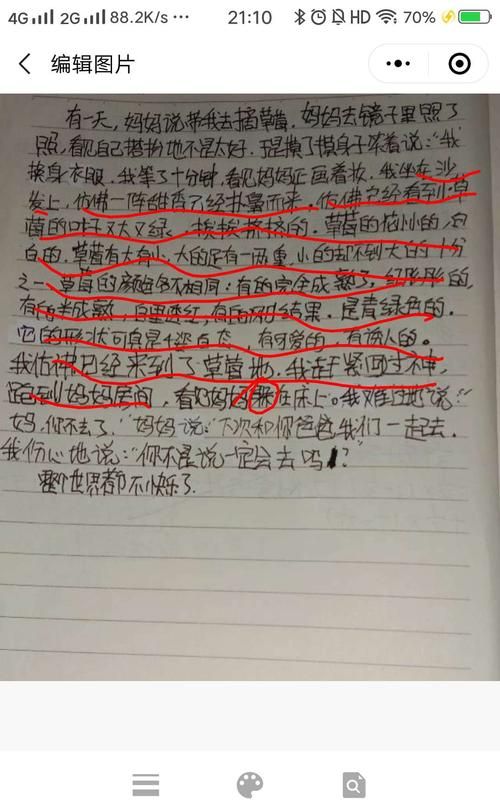 4G 2G 88.2K/s ··· 21:10 HD 70%
编辑图片
有一天，妈妈说带我去摘草莓，妈妈去镜子里照了
照，看见自己搭扮地不是太好，于是摸了摸身子笑着说：“我
换身衣服，我等了十分钟，看见妈妈正画着妆，我坐在沙
发上，仿佛一阵阵香已经扑鼻而来，仿佛已经看到草
莓的叶子又大又绿，挨挨挤挤的，草莓的花小的，白
白的，草莓有大有小，大的足有一两重，小的却不到大的十分
之一，草莓的颜色各不相同：有的完全成熟了，红彤彤的，
有的半成熟，白里透红，有的刚刚结果，是青绿色的。
它的形状可真是千姿百态，有可爱的，有诱人的。
我仿佛已经来到了草莓地，我连忙紧回过神，
跑到妈妈房间，看妈妈在床上。我难过地说：“
妈，你不去了，”妈妈说：“下次和你爸爸我们一起去.
我伤心地说：“你不是说一定会去吗？”
整个世界都不快乐了.